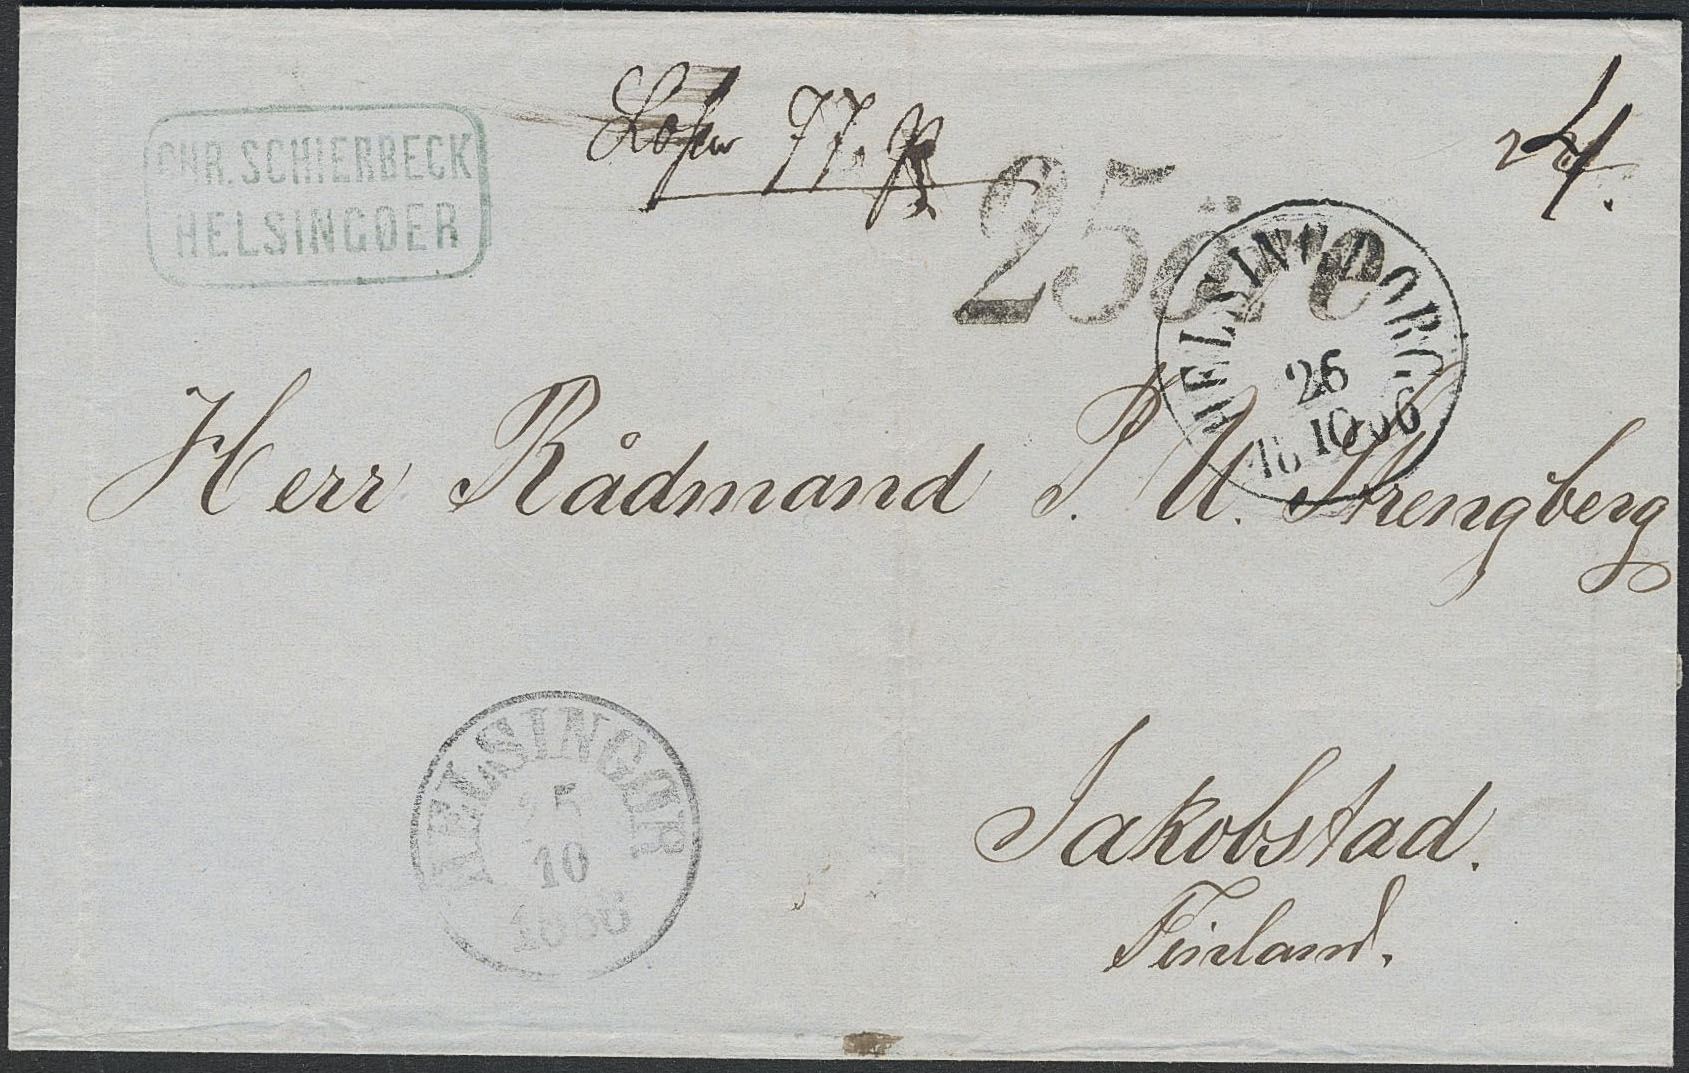 CHR. SCHIERBECK
HELSINGOER
77
4.
25 öre
HELSINGBORG
26
10
Herr Rådmand P. U. Strengberg
HELSINGØR
25
10
1866
Jakobstad.
Finland.